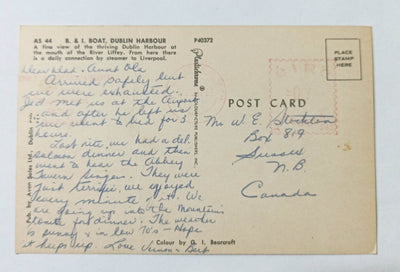 AS 44 B. & I. BOAT, DUBLIN HARBOUR
A fine view of the thriving Dublin Harbour at
the mouth of the River Liffey. From here there
is a daily connection by steamer to Liverpool.
P40372
Plastichrome
®
PLACE
STAMP
HERE
POST CARD
Dear Aunt Ola
Arrived safely but
we were exhausted.
Ted met us at the Airport
and after he left us
we went to bed for 3
hours.
Last nite we had a del.
salmon dinner and then
went to hear the Abbey
Tavern Singers. They were
just terrific, we enjoyed
every minute of it. We
are going up into the Mountains
tonite for dinner. The weather
is sunny & in low 70's - Hope
it keeps up. Love Vernon &
Mr W. E. Stockton
Box 819
Sussex
N.B.
Canada
Colour by G. I. Bearcroft